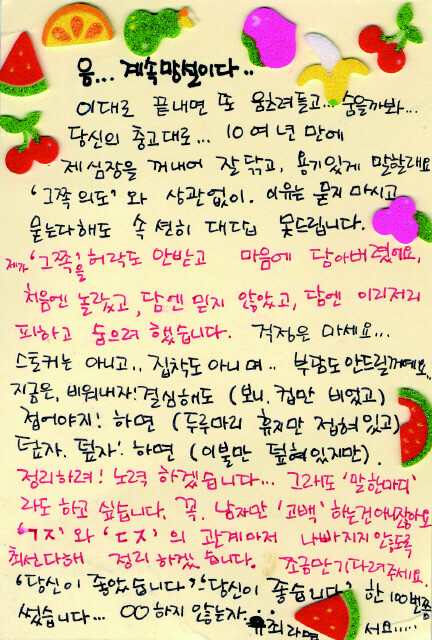 음... 계속 망설이다..
이대로 끝내면 또 움츠려들고... 숨을까봐...
당신의 충고대로... 10여년 만에
제 심장을 꺼내어 잘 닦고, 용기있게 말할래요
'그쪽 의도'와 상관없이. 이유는 묻지 마시고
묻는다해도 속 션히 대답 못드립니다.
제가 '그쪽'을 허락도 안받고 마음에 담아버렸어요,
처음엔 놀랐고, 담엔 믿지 않았고, 담엔 이리저리
피하고 숨으려 했습니다. 걱정은 마세요...
스토커는 아니고.. 집착도 아니며.. 부담도 안드릴꺼예요..
지금은, 비워내자! 결심해도 (보니, 컵만 비었고)
접어야지! 하면 (두루마리 휴지만 접혀있고)
덮자. 덮자! 하면 (이불만 덮혀있지만).
정리하려! 노력 하겠습니다... 그래도 '말한마디'
라도 하고 싶습니다. 꼭, 남자만 '고백' 하는건 아니잖아요
'ㄱㅈ'와 'ㄷㅈ'의 관계마저 나빠지지 않도록
최선다해 정리하겠습니다. 조금만 기다려주세요.
"당신이 좋았습니다" "당신이 좋습니다" 한 100번쯤
썼습니다... ○○하지 않는자.. 유죄라
서요.....